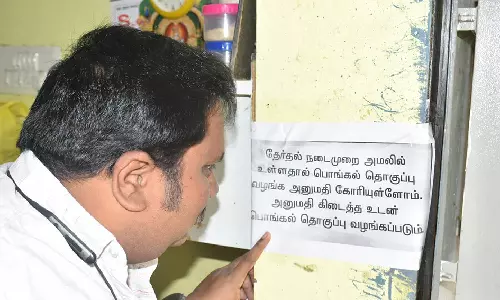 தேர்தல் நடைமுறை அமலில்
உள்ளதால் பொங்கல் தொகுப்பு
வழங்க அனுமதி கோரியுள்ளோம்.
அனுமதி கிடைத்த உடன்
பொங்கல் தொகுப்பு வழங்கப்படும்